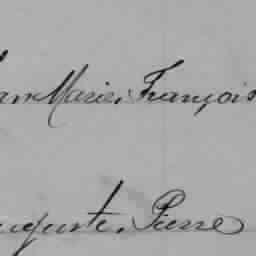 Marie, François
Auguste, Pierre